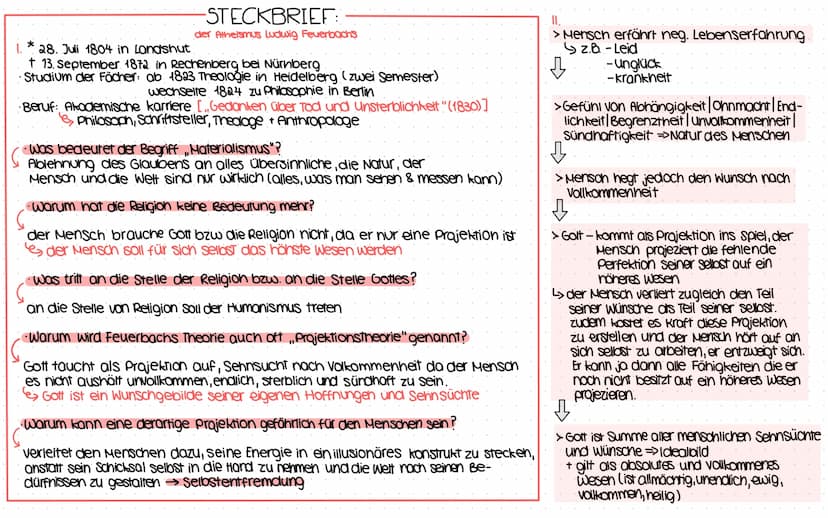 STECKBRIEF:
der Atheismus Ludwig Feuerbachs
I. * 28. Juli 1804 in Landshut
† 13. September 1872 in Rechenberg bei Nürnberg
· Studium der Fächer: ab 1823 Theologie in Heidelberg (zwei Semester)
wechselte 1824 zu Philosophie in Berlin
· Beruf: Akademische Karriere [„Gedanken über Tod und Unsterblichkeit" (1830)]
↳ Philosoph, Schriftsteller, Theologe + Anthropologe
· Was bedeutet der Begriff „Materialismus"?
Ablehnung des Glaubens an alles Übersinnliche, die Natur, der
Mensch und die Welt sind nur wirklich (alles, was man sehen & messen kann)
· Warum hat die Religion keine Bedeutung mehr?
der Mensch brauche Gott bzw die Religion nicht, da er nur eine Projektion ist
↳ der Mensch soll für sich selbst das höhste Wesen werden
· Was tritt an die Stelle der Religion bzw. an die Stelle Gottes?
an die Stelle von Religion soll der Humanismus treten
· Warum wird Feuerbachs Theorie auch oft „Projektionstheorie" genannt?
Gott taucht als Projektion auf, Sehnsucht nach Vollkommenheit da der Mensch
es nicht aushält unvollkommen, endlich, sterblich und sündhaft zu sein.
↳ Gott ist ein Wunschgebilde seiner eigenen Hoffnungen und Sehnsüchte
· Warum kann eine derartige Projektion gefährlich für den Menschen sein?
verleitet den Menschen dazu, seine Energie in ein illusionäres Konstrukt zu stecken,
anstatt sein Schicksal selbst in die Hand zu nehmen und die Welt nach seinen Be-
dürfnissen zu gestalten → Selbstentfremdung
II.
> Mensch erfährt neg. Lebenserfahrung
↳ z.B. - Leid
- unglück
- krankheit
> Gefühl von Abhängigkeit | Ohnmacht | End-
lichkeit | Begrenztheit | Unvollkommenheit |
Sündhaftigkeit ⇒ Natur des Menschen
> Mensch hegt jedoch den Wunsch nach
Vollkommenheit
> Gott – kommt als Projektion ins Spiel, der
Mensch projeziert die fehlende
Perfektion seiner selbst auf ein
höheres Wesen
↳ der Mensch verliert zugleich den Teil
seiner Wünsche als Teil seiner selbst.
zudem kostet es Kraft diese Projektion
zu erstellen und der Mensch hört auf an
sich selbst zu arbeiten, er entzweigt sich.
Er kann ja dann alle Fähigkeiten die er
noch nicht besitzt auf ein höheres Wesen
projezieren.
> Gott ist Summe aller menschlichen Sehnsüchte
und Wünsche ⇒ Idealbild
+ gilt als absolutes und vollkommenes
Wesen (ist allmächtig, unendlich, ewig,
vollkommen, heilig)